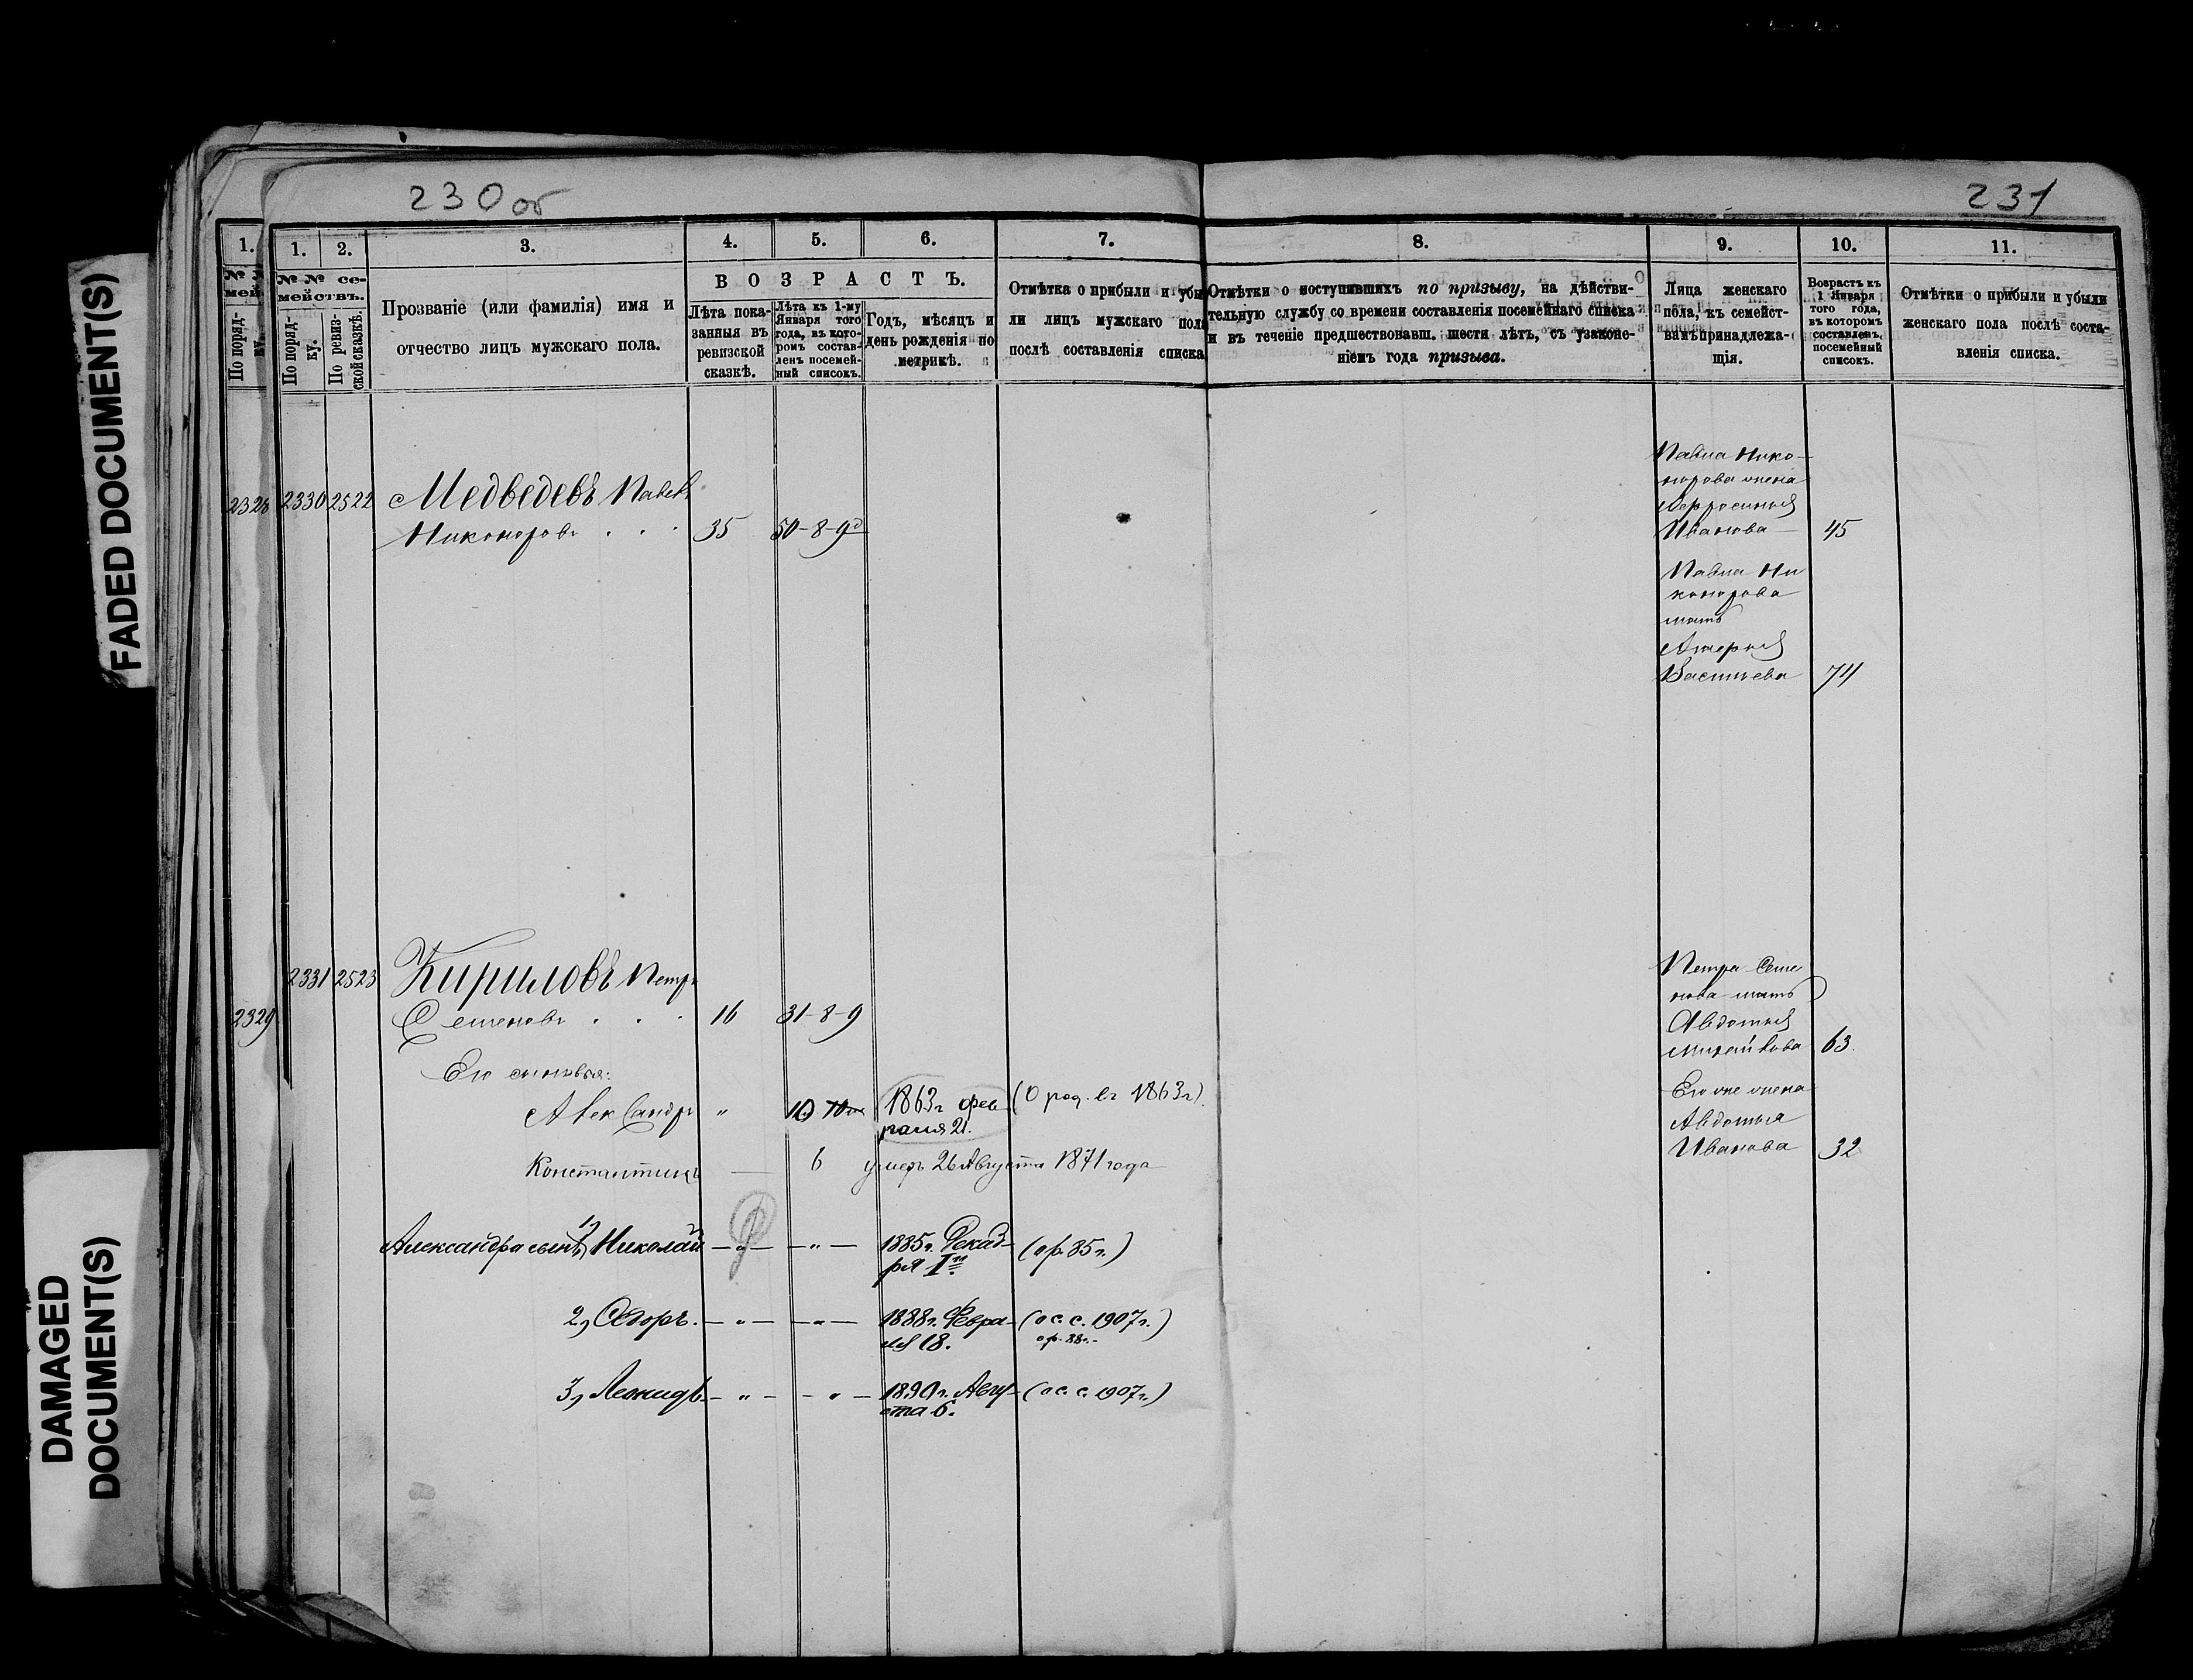 230 об
231
FADED DOCUMENT(S)
DAMAGED
DOCUMENT(S)
1.
По поряд-
1. 2. 3. 4. 5. 6. 7. 8. 9. 10. 11.
№ № се-
мействъ.
По поряд-
ку.
По ревиз-
ской сказкѣ.
Прозваніе (или фамилія) имя и
отчество лицъ мужскаго пола.
ВОЗРАСТЪ.
Лѣта пока-
занныя въ
ревизской
сказкѣ.
Лѣта къ 1-му
Января того
года, въ кото-
ромъ состав-
ленъ посемей-
ный списокъ.
Годъ, мѣсяцъ и
день рожденія по
метрикѣ.
Отмѣтка о прибыли и убы
ли лицъ мужскаго пола
послѣ составленія списка
Отмѣтки о поступившихъ по призыву, на дѣйстви-
тельную службу со времени составленія посемейнаго списка
и въ теченіе предшествовавш. шести лѣтъ, съ узаконе-
ніемъ года призыва.
Лица женскаго
пола, къ семейст-
вамъ принадлежа-
щія.
Возрастъ къ
1 Января
того года,
въ которомъ
составленъ
посемейный
списокъ.
Отмѣтки о прибыли и убыли
женскаго пола послѣ соста-
вленія списка.
2328 2330 2522 Медведевъ Павелъ
Никоноровъ . . . 35 50-8-9
Павла Нико-
норова жена
Ефросинья
Иванова — 45
Павла Ни
конорова
мать
Васильева 74
2331 2523 Кириловъ Петръ
2329 Семеновъ . . . 16 31-8-9
Петра Семе
нова мать
Авдотья
Михайлова 63.
Его сыновья:
Александръ " 10 1863г фев (О род. въ 1863г).
раля 21.
Его же жена
Авдотья
Иванова 32
Константинъ — 6 умеръ 26 Августа 1871 года
Александра сынъ 1, Николай — " — — " — 1885г. Декаб- (о р. 85г.)
ря 1го
2, Ѳедоръ. — " — — " — 1888г. Февра- (о с. с. 1907г.)
ля 18. о р. 88г.-
3, Леонидъ — " — — " — 1890г. Авгу- (о с. с. 1907г.)
ста 6.